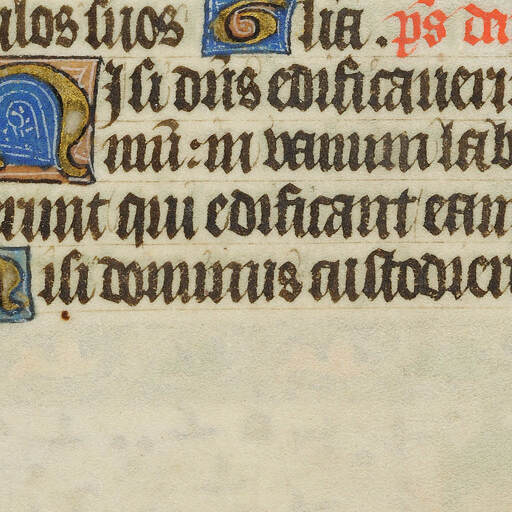 ulos suos Glia. ps da
Nisi dns edificaueri
mū: in vanum lab
runt qui edificant eam
Nisi dominus custodieri